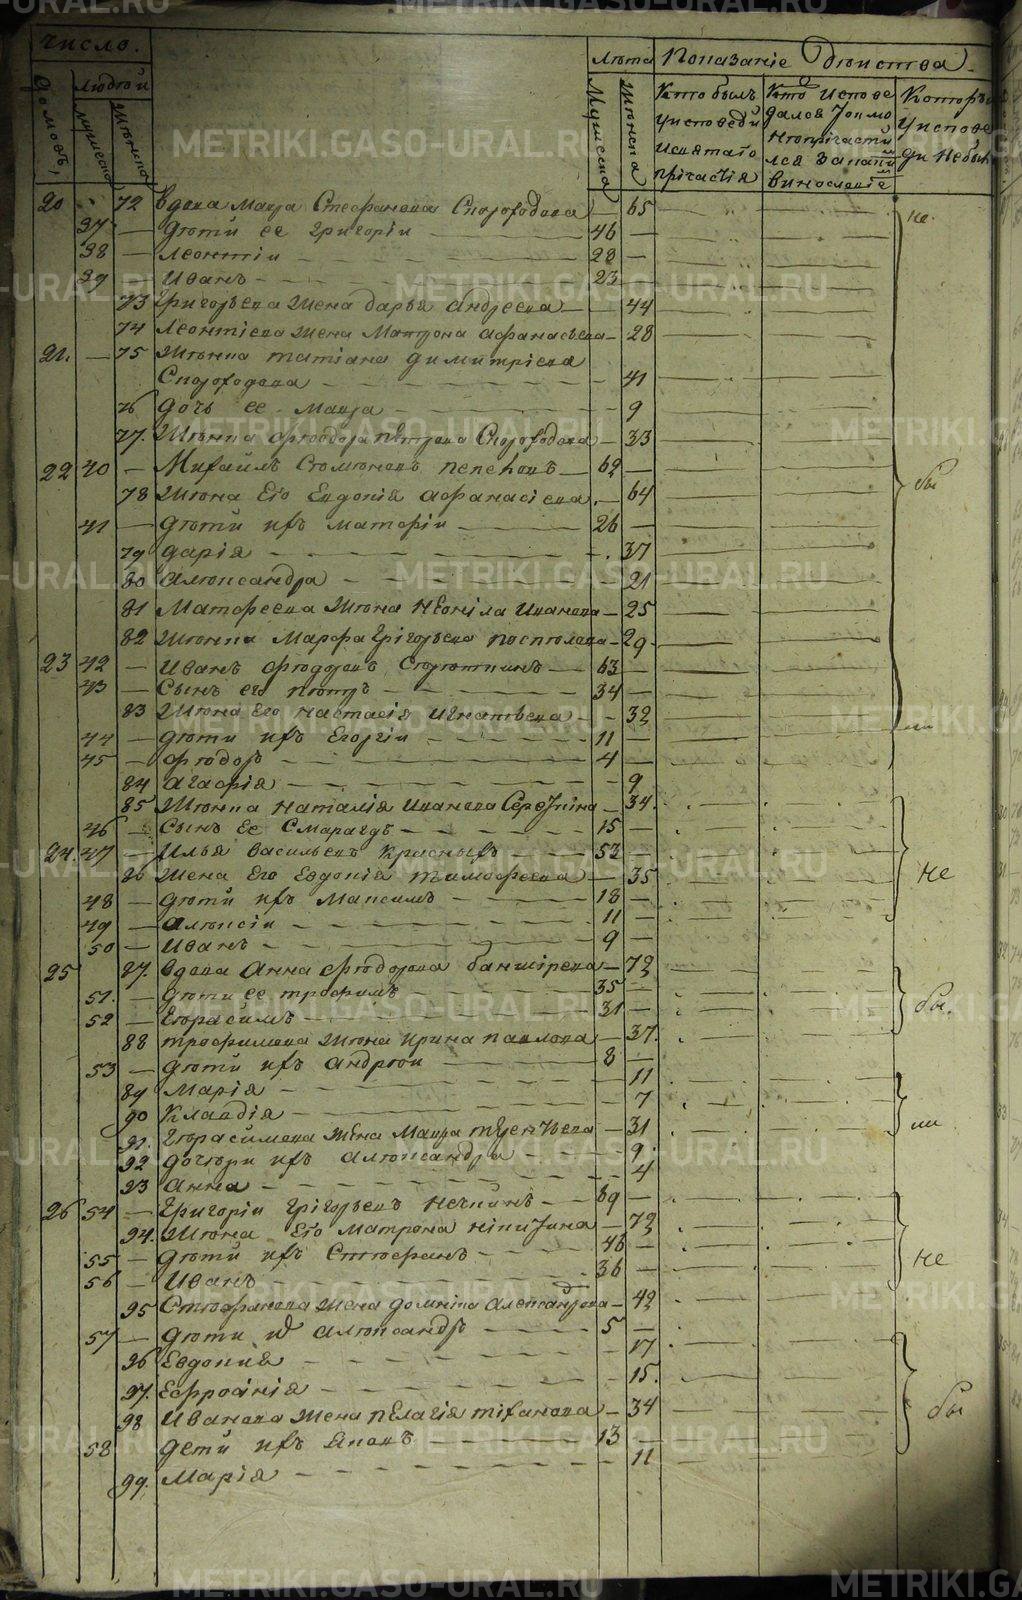 METRIKI.GASO-URAL.RU
число.
лѣта Показаніе Дѣйства
Домовъ,
людѣй
мужеска
женска
Мужеска
женска
Кто былъ у исповѣди и святаго причастія
Кто исповедался токмо
Которые у исповеди небыли
20 72 Вдова Мавра Стефанова Скороходова — 65
37 — дѣти ее Григоріи 46 —
38 — Леонтіи 28 —
39 — Иванъ 23 —
73 Григорьева жена дарья Андреева — 44
74 Леонтіева жена Матрона Афанасьева — 28
21. — 75 Жѣнка татіана димитріева
Скороходова — 41
76 дочь ее Мавра — 9
77. Жѣнка Фѣодора Петрова Скороходова — 33
22 40 — Михайлъ Сѣмѣновъ 62 —
78 Жѣна Его Евдокія Афанасіева — 64
41 — дѣти ихъ Матфіи 26 —
79 дарія — 37
80 Алѣксандра — 21
81 Матфеева Жѣна Неоніла Иванова — 25
82 Жѣнка Марфа Григорьева — 29
23 42 — Иванъ Фѣдоровъ 63 —
43 — Сынъ его Пѣтръ 34 —
83 Жѣна Его Настасія Игнатьева — 32
44 — дѣти ихъ Егоріи 11 —
45 — Фѣдоръ 4 —
84 Агафія — 9
85 Жѣнка Наталія Иванова — 34.
46 — Сынъ Ее Смарагдъ 15 —
24. 47 — Илья Васильевъ Красныхъ 53 —
86 Жена Его Евдокія Тимофеева — 35
48 — дѣти ихъ Максимъ 18 —
49 — Алѣксіи 11 —
50 — Иванъ 9 —
25 87. Вдова Анна Фѣдорова — 72
51. — дѣти ее трофимъ 35 —
52 — Ейрасимъ 31 —
88 трофимова Жѣна Ирина Павлова — 37.
53 — дѣти ихъ Андрѣи 8 —
89 Марія — 11
90 Клавдія — 7
91. Гѣрасимова Жена Мавра — 31
92 дочѣри ихъ Алѣксандра — 9.
93 Анна — 4
26 54 — Григоріи Григорьевъ Нечкинъ 69 —
94. Жѣна Его Матрона Никитина — 72
55 — дѣти ихъ Стѣфанъ 46 —
56 — Иванъ 36 —
95 Стѣфанова Жена домніка Александрова — 42
57 — дѣти их Алѣксандръ 5 —
96 Евдокия — 17
97. Ефросінія — 15.
98 Иванова Жена Пелагія — 34
58 дети ихъ Яковъ 13
99. Марія — 11
не
бы
ли
не
бы.
ли
не
бы